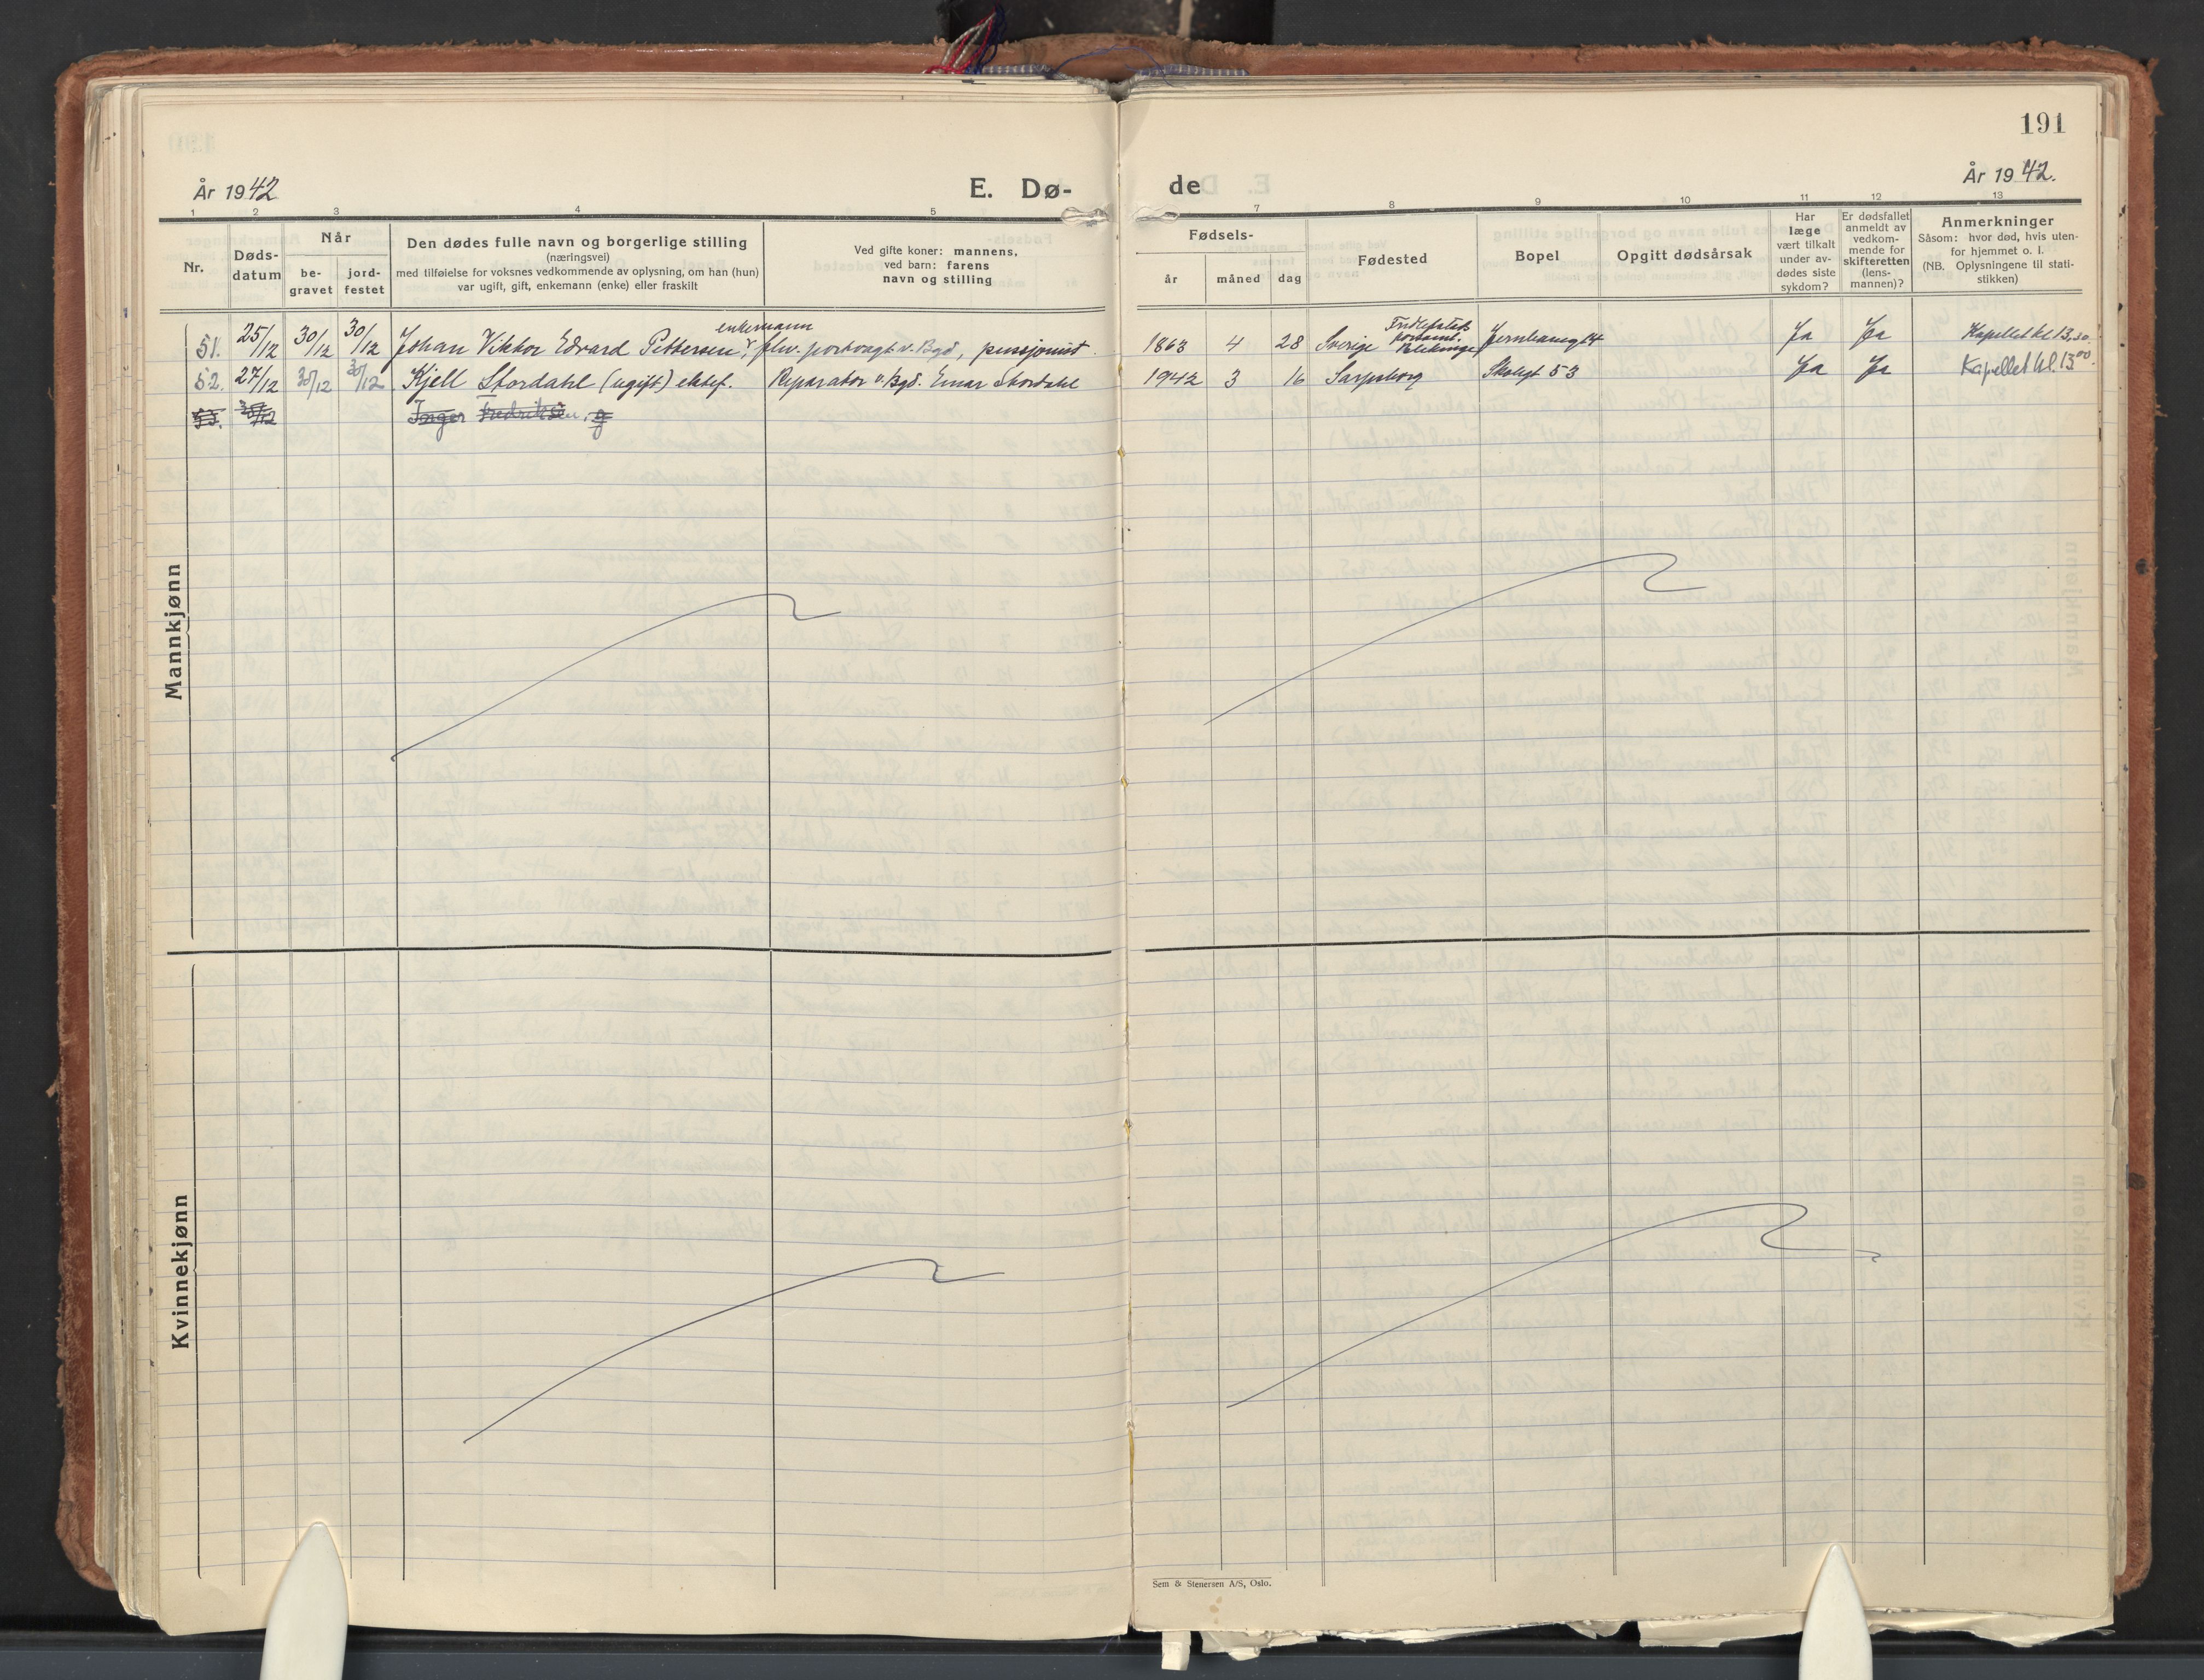 191
År 1942
E. Dø-
de
År 1942.
1 2 3 4 5
7 8 9 10 11 12 13
Nr.
Døds-
datum
Når
be-
gravet
jord-
festet
Den dødes fulle navn og borgerlige stilling
(næringsvei)
med tilføielse for voksnes vedkommende av oplysning, om han (hun)
var ugift, gift, enkemann (enke) eller fraskilt
Ved gifte koner: mannens,
ved barn: farens
navn og stilling
Fødsels-
år
måned
dag
Fødested
Bopel
Opgitt dødsårsak
Har
læge
vært tilkalt
under av-
dødes siste
sykdom?
Er dødsfallet
anmeldt av
vedkom-
mende for
skifteretten
(lens-
mannen)?
Anmerkninger
Såsom: hvor død, hvis uten-
for hjemmet o. l.
(NB. Oplysningene til stati-
stikken)
enkemann
51. 25/12 30/12 30/12 Johan Viktor Edvard Pettersen, portvagt v. Bgd, pensjonist. 1863 4 28 Sverige Blekinge Ja Ja Kapellet kl 13,30
52. 27/12 30/12 30/12 Kjell Stordahl (ugift) ektef. Reparatør v. Bgd. Einar Stordahl 1942 3 16 Sarpsborg Skolegt 53 Ja Ja Kapellet kl. 13⁰⁰
53. 30/12 Inger Fredriksen, g
Mannkjønn
Kvinnekjønn
Sem & Stenersen A/S, Oslo.